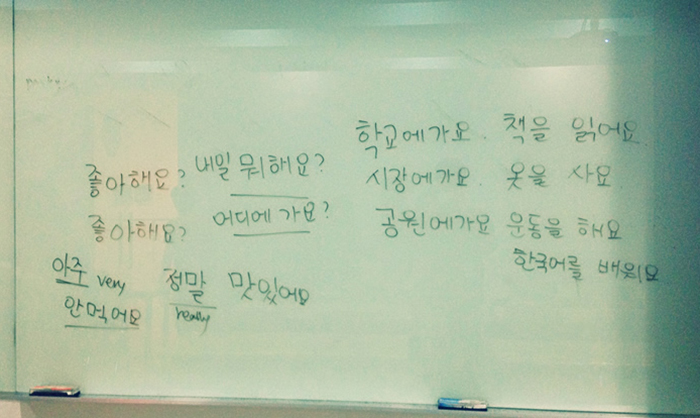 좋아해요? 내일 뭐해요?
좋아해요? 어디에 가요?
아주 very 정말 맛있어요
안먹어요 really
학교에가요. 책을 읽어요.
시장에가요. 옷을 사요
공원에가요 운동을 해요
한국어를 배워요